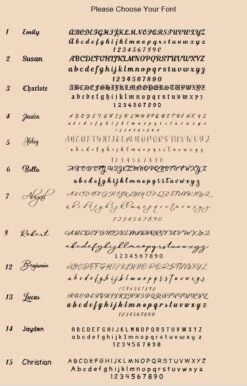 Please Choose Your Font
1 Emily ABCDEFGHIJKLMNOPQRSTUVWXYZ
abcdefghijklmnopqrstuvwxyz
1234567890
2 Susan ABCDEFGHIJKLMNOPQRSTUVWXYZ
abcdefghijklmnopqrstuvwxyz
1234567890
3 Charlote ABCDEFGHIJKLMNOPQRSTUVWXYZ
abcdefghijklmnopqrstuvwxyz
1234567890
4 Jessica ABCDEFGHIJKLMNOPQRSTUVWXYZ
abcdefghijklmnopqrstuvwxyz
1234567890
5 Abby ABCDEFGHIJKLMNOPQRSTUVWXYZ
abcdefghijklmnopqrstuvwxyz
1234567890
6 Bella ABCDEFGHIJKLMNOPQRSTUVWXYZ
abcdefghijklmnopqrstuvwxyz
1234567890
7 Abigail ABCDEFGHIJKLMNOPQRSTUVWXYZ
abcdefghijklmnopqrstuvwxyz
1234567890
8 Robert ABCDEFGHIJKLMNOPQRSTUVWXYZ
abcdefghijklmnopqrstuvwxyz
1234567890
12 Benjamin ABCDEFGHIJKLMNOPQRSTUVWXYZ
abcdefghijklmnopqrstuvwxyz
1234567890
13 Lucas ABCDEFGHIJKLMNOPQRSTUVWXYZ
abcdefghijklmnopqrstuvwxyz
1234567890
14 Jayden ABCDEFGHIJKLMNOPQRSTUVWXYZ
abcdefghijklmnopqrstuvwxyz
1234567890
15 Christian ABCDEFGHIJKLMNOPQRSTUVWXYZ
abcdefghijklmnopqrstuvwxyz
1234567890